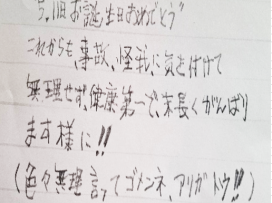 11日お誕生日おめでとう
これからも、事故、怪我に気を付けて
無理せず、健康第一で、末長くがんばり
ます様に!!
(色々無理言ってゴメンネ、アリガトウ!!)